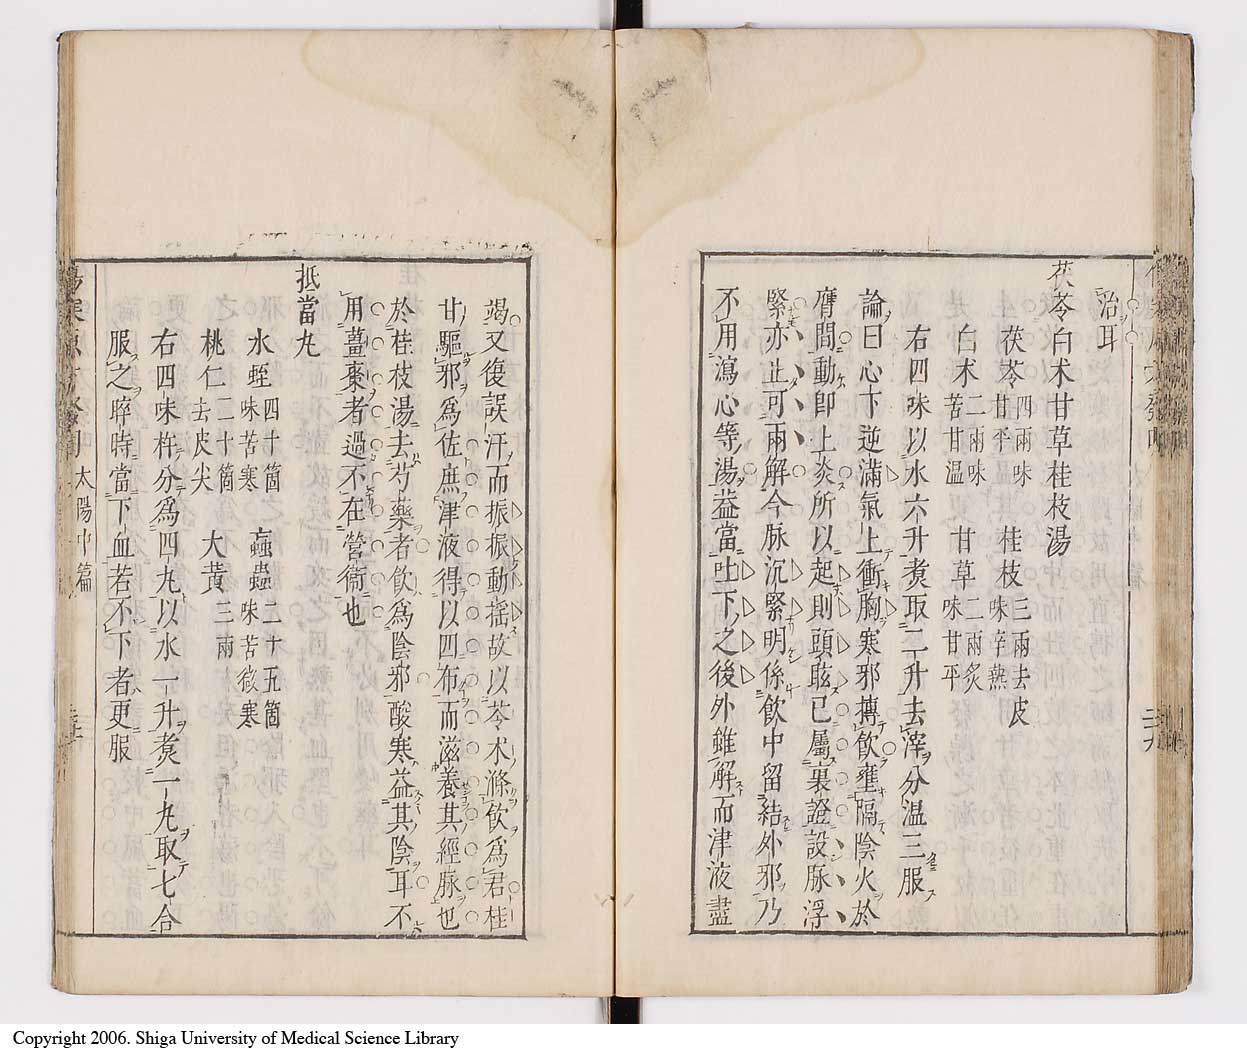 治耳
茯苓白术甘草桂枝湯
茯苓四兩味甘平 桂枝三兩去皮味辛熱
白术二兩味苦甘温 甘草二兩炙味甘平
右四味以水六升煑取二升去滓分温三服
論曰心下逆滿氣上衝胸寒邪摶飲壅隔陰火於
膺間動即上炎所以起則頭眩已屬裏證設脉浮
緊亦止可兩解今脉沉緊明係飲中留結外邪乃
不用瀉心等湯葢當吐下之後外雖解而津液盡
竭又復誤汗而振振動揺故以苓术滌飲爲君桂
甘驅邪爲佐庶津液得以四布而滋養其經脉也
於桂枝湯去芍藥者飲爲陰邪酸寒益其陰耳不
用薑棗者過不在營衞也
抵當丸
水蛭四十箇味苦寒 蝱蟲二十五箇味苦微寒
桃仁二十箇去皮尖 大黄三兩
右四味杵分爲四丸以水一升煑一丸取七合
服之晬時當下血若不下者更服
太陽中篇
Copyright 2006. Shiga University of Medical Science Library